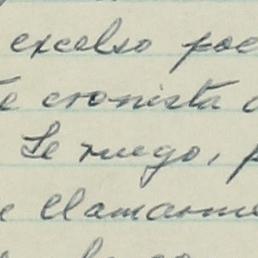 excelso poe
te cronista d
Le ruego, p
e llamarme